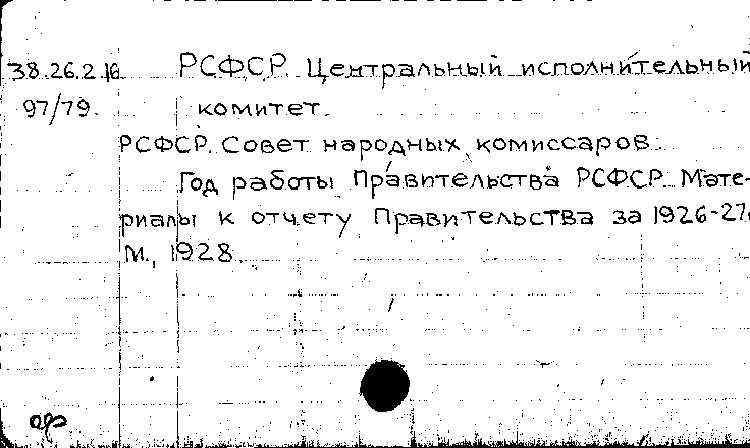 38.26.2.16 РСФСР. Центральный исполнительный
97/79. комитет.
РСФСР. Совет народных комиссаров.
Год работы Правительства РСФСР. Мате-
риалы к отчету Правительства за 1926-27.
М., 1928.